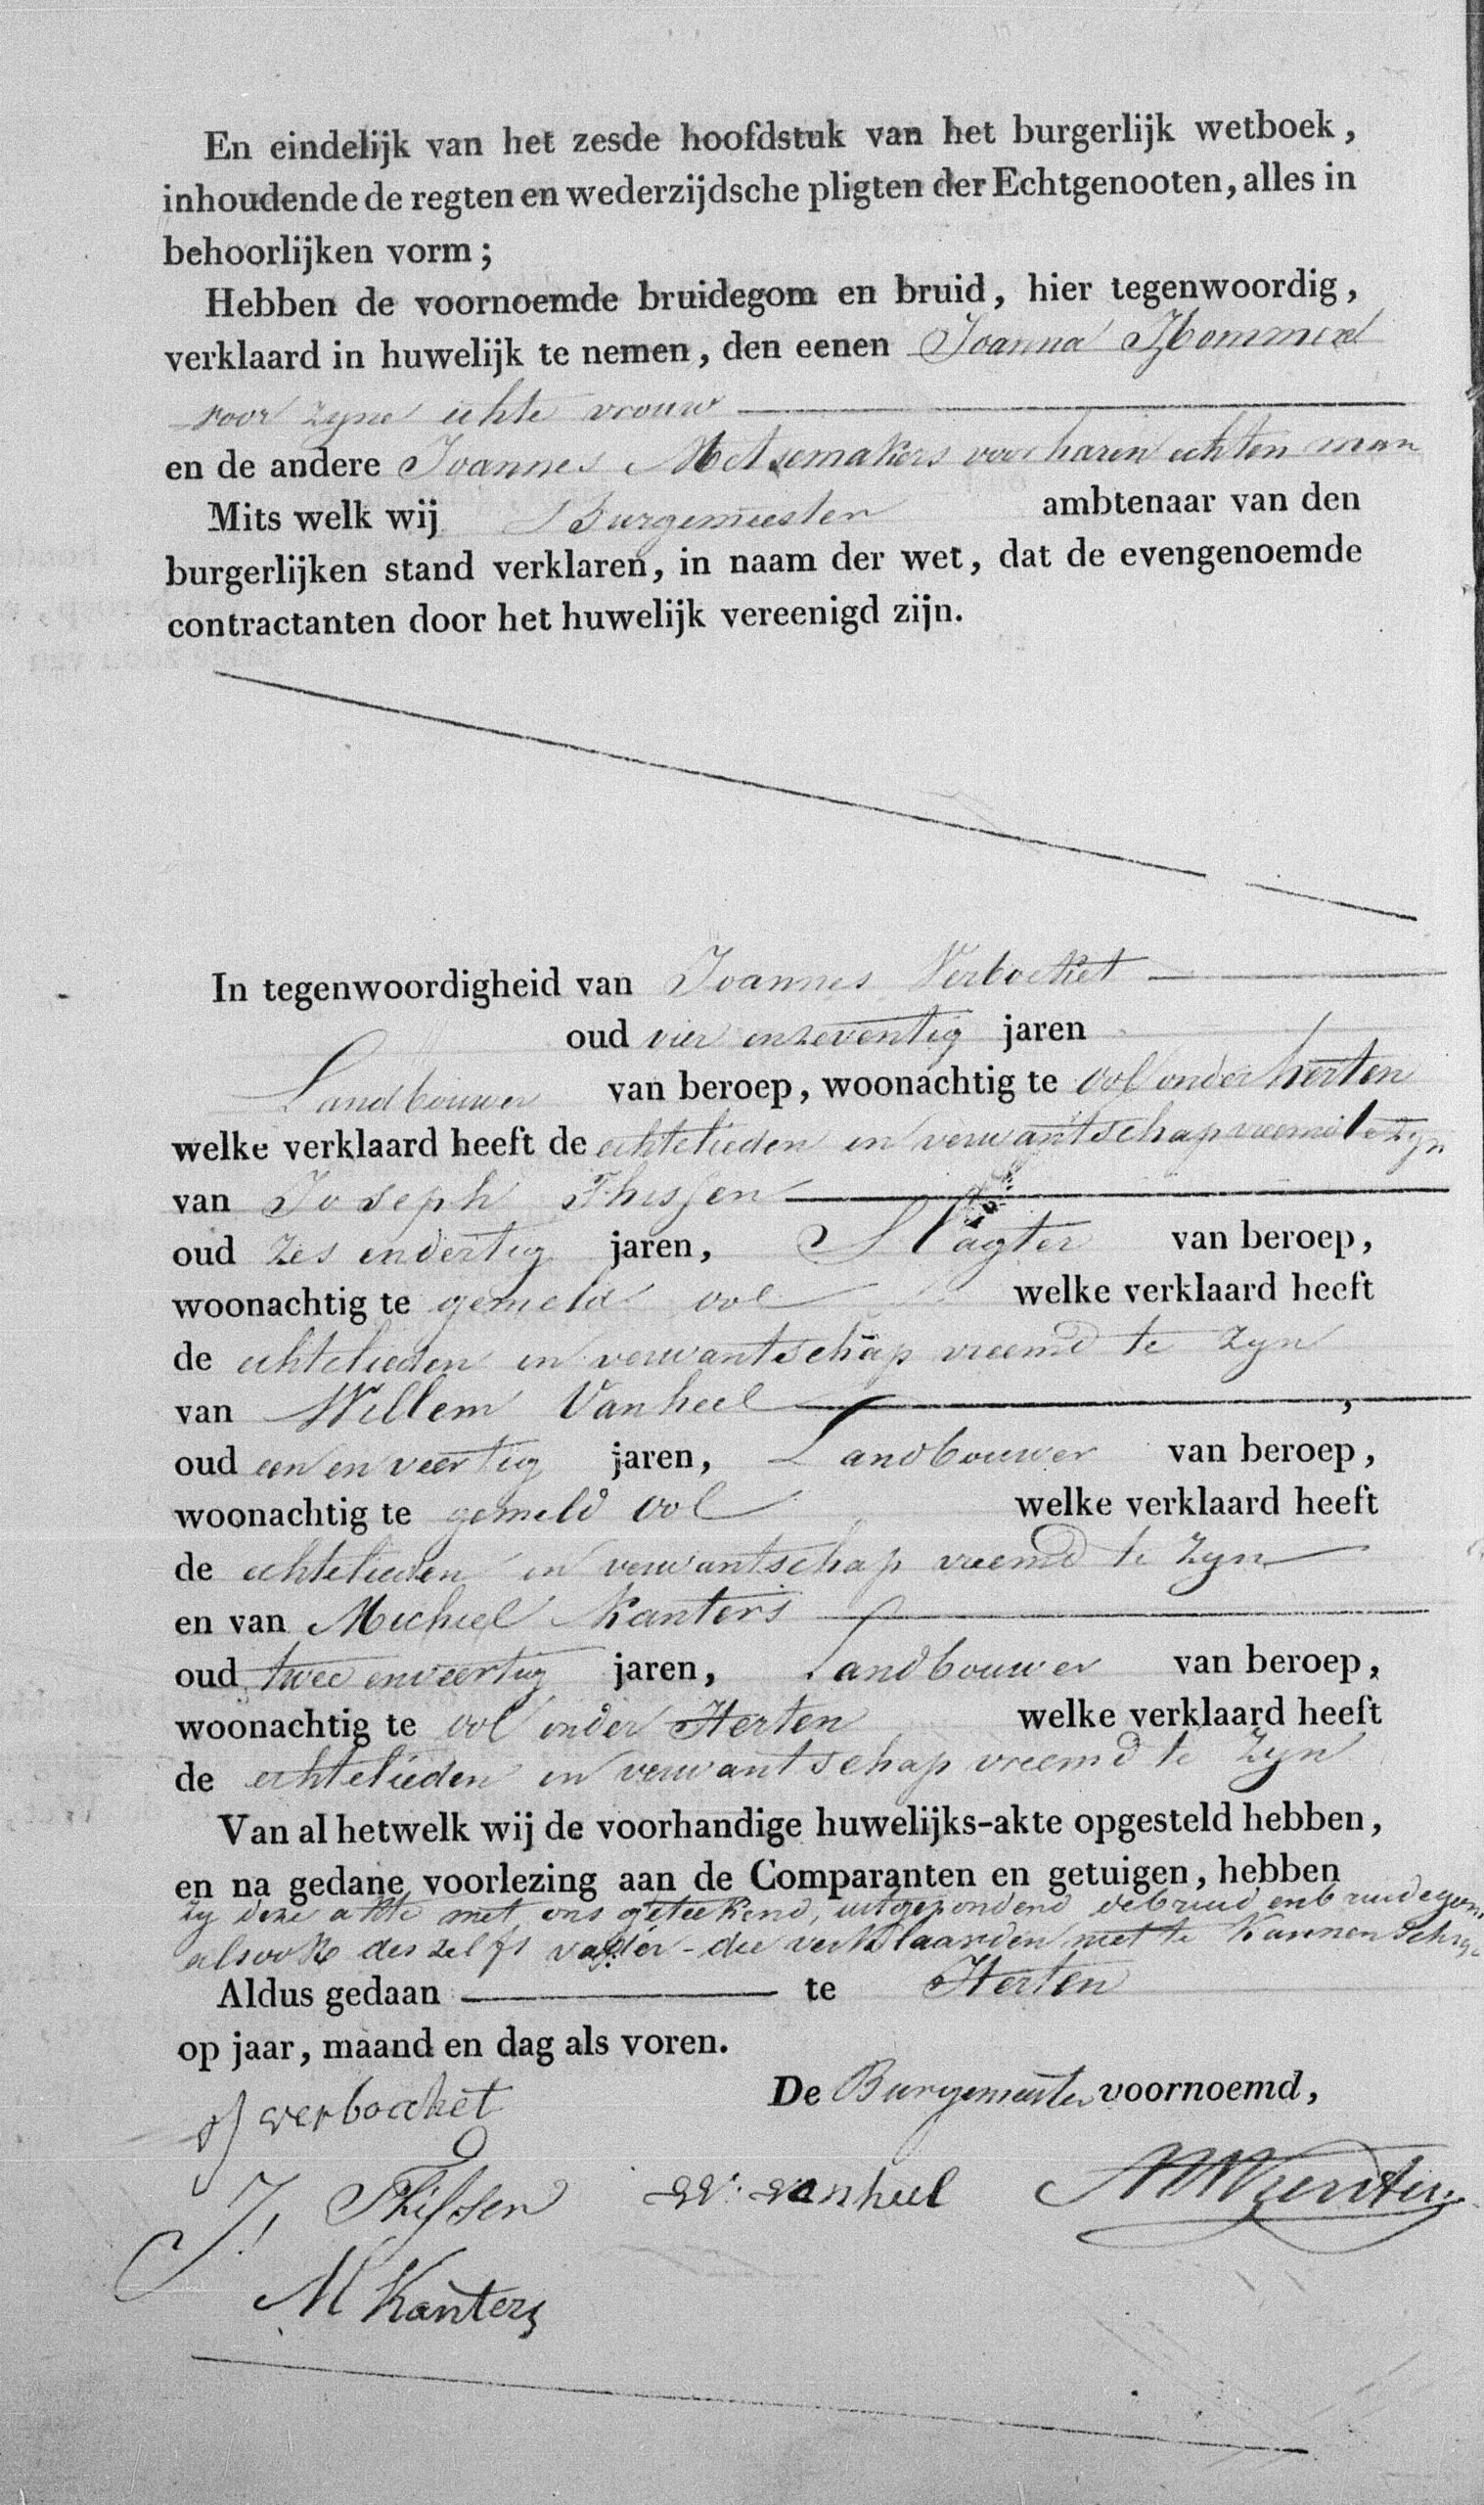 En eindelijk van het zesde hoofdstuk van het burgerlijk wetboek,
inhoudende de regten en wederzijdsche pligten der Echtgenooten, alles in
behoorlijken vorm;
Hebben de voornoemde bruidegom en bruid, hier tegenwoordig,
verklaard in huwelijk te nemen, den eenen Joanna
voor zyne echte vrouw
en de andere Joannes Metsemakers voor haren echten man
Mits welk wij Burgemeester ambtenaar van den
burgerlijken stand verklaren, in naam der wet, dat de evengenoemde
contractanten door het huwelijk vereenigd zijn.
In tegenwoordigheid van Joannes Verbocket
oud vier enzeventig jaren
Landbouwer van beroep, woonachtig te ool onder herten
welke verklaard heeft de echtelieden in verwantschap vreemd te zyn
van Joseph Thissen
oud zes endertig jaren, Slagter van beroep,
woonachtig te gemeld ool welke verklaard heeft
de echtelieden in verwantschap vreemd te zyn
van Willem Vanheel ,
oud een en veertig jaren, Landbouwer van beroep,
woonachtig te gemeld ool welke verklaard heeft
de echtelieden in verwantschap vreemd te zyn
en van Michiel Kanters
oud twee enveertig jaren, Landbouwer van beroep,
woonachtig te ool onder Herten welke verklaard heeft
de echtelieden in verwantschap vreemd te zyn
Van al hetwelk wij de voorhandige huwelijks-akte opgesteld hebben,
en na gedane voorlezing aan de Comparanten en getuigen, hebben
zy deze akte met ons geteekend, uitgezonderd debruid enbruidegom
alsook des zelfs vader - die verklaarden niet te kunnen
Aldus gedaan te Herten
op jaar, maand en dag als voren.
De Burgemeester voornoemd,
J verbocket
J. Thissen W. vanheel
M Kanters